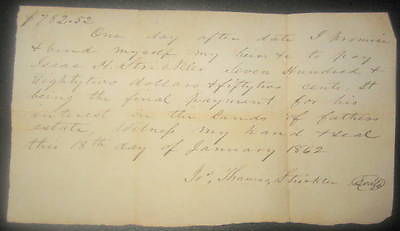 $782.52
One day after date I promise
& bind myself my heirs to pay
Isaac H. Strickler Seven Hundred &
Eightytwo dollars & fiftytwo cents. It
being the final payment for his
interest in the lands of fathers
estate, Witness my hand & seal
this 18th day of January 1862
Thomas Strickler Seal